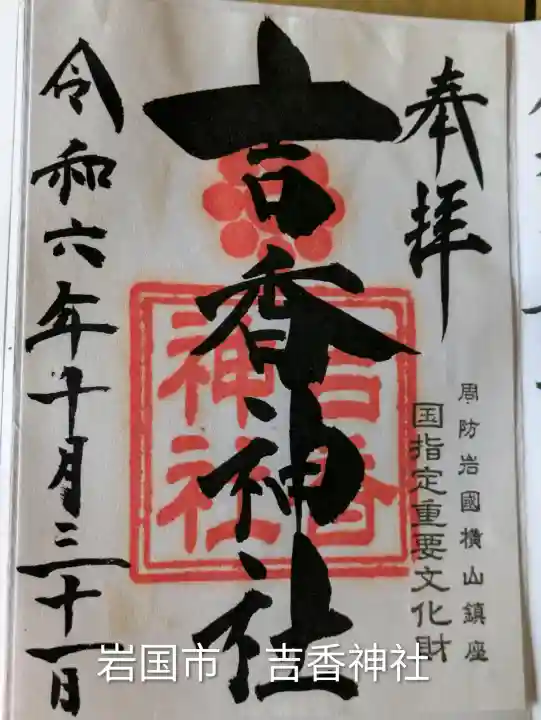 奉拝
周防岩國横山鎮座
国指定重要文化財
吉香神社
吉香
神社
令和六年十月三十一日
岩国市 吉香神社